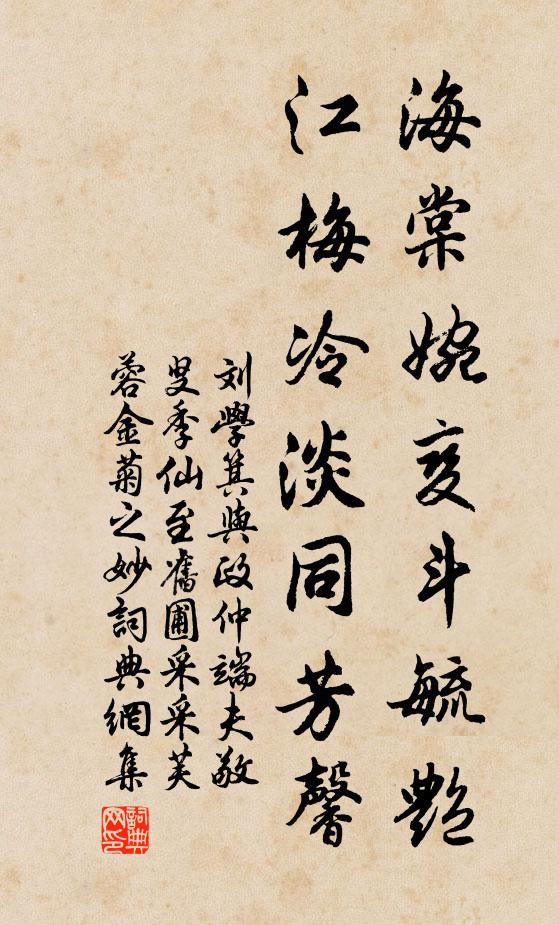 海棠婉变斗毓艶
江梅冷淡同芳馨
刘學箕與政仲端夫敬
叟季仙至舊圃采采芙
蓉金菊之妙詞典網集
詞典网印